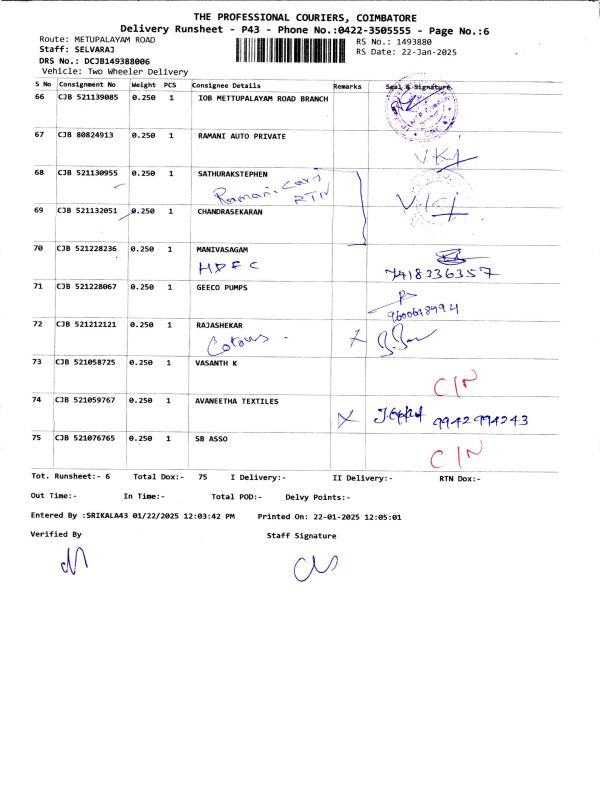 THE PROFESSIONAL COURIERS, COIMBATORE
Delivery Runsheet - P43 - Phone No.:0422-3505555 - Page No.:6
Route: METUPALAYAM ROAD RS No.: 1493880
Staff: SELVARAJ RS Date: 22-Jan-2025
DRS No.: DCJB149388006
Vehicle: Two Wheeler Delivery
S No Consignment No Weight PCS Consignee Details Remarks Seal & Signature
66 CJB 521139085 0.250 1 IOB METTUPALAYAM ROAD BRANCH
67 CJB 80824913 0.250 1 RAMANI AUTO PRIVATE
68 CJB 521130955 0.250 1 SATHURAKSTEPHEN
Ramani. Cars
RTN
69 CJB 521132051 0.250 1 CHANDRASEKARAN
70 CJB 521228236 0.250 1 MANIVASAGAM
HDFC 7418336357
71 CJB 521228067 0.250 1 GEECO PUMPS
72 CJB 521212121 0.250 1 RAJASHEKAR
73 CJB 521058725 0.250 1 VASANTH K
C/N
74 CJB 521059767 0.250 1 AVANEETHA TEXTILES
X 9942994243
75 CJB 521076765 0.250 1 SB ASSO
C/N
Tot. Runsheet:- 6 Total Dox:- 75 I Delivery:- II Delivery:- RTN Dox:-
Out Time:- In Time:- Total POD:- Delvy Points:-
Entered By :SRIKALA43 01/22/2025 12:03:42 PM Printed On: 22-01-2025 12:05:01
Verified By Staff Signature